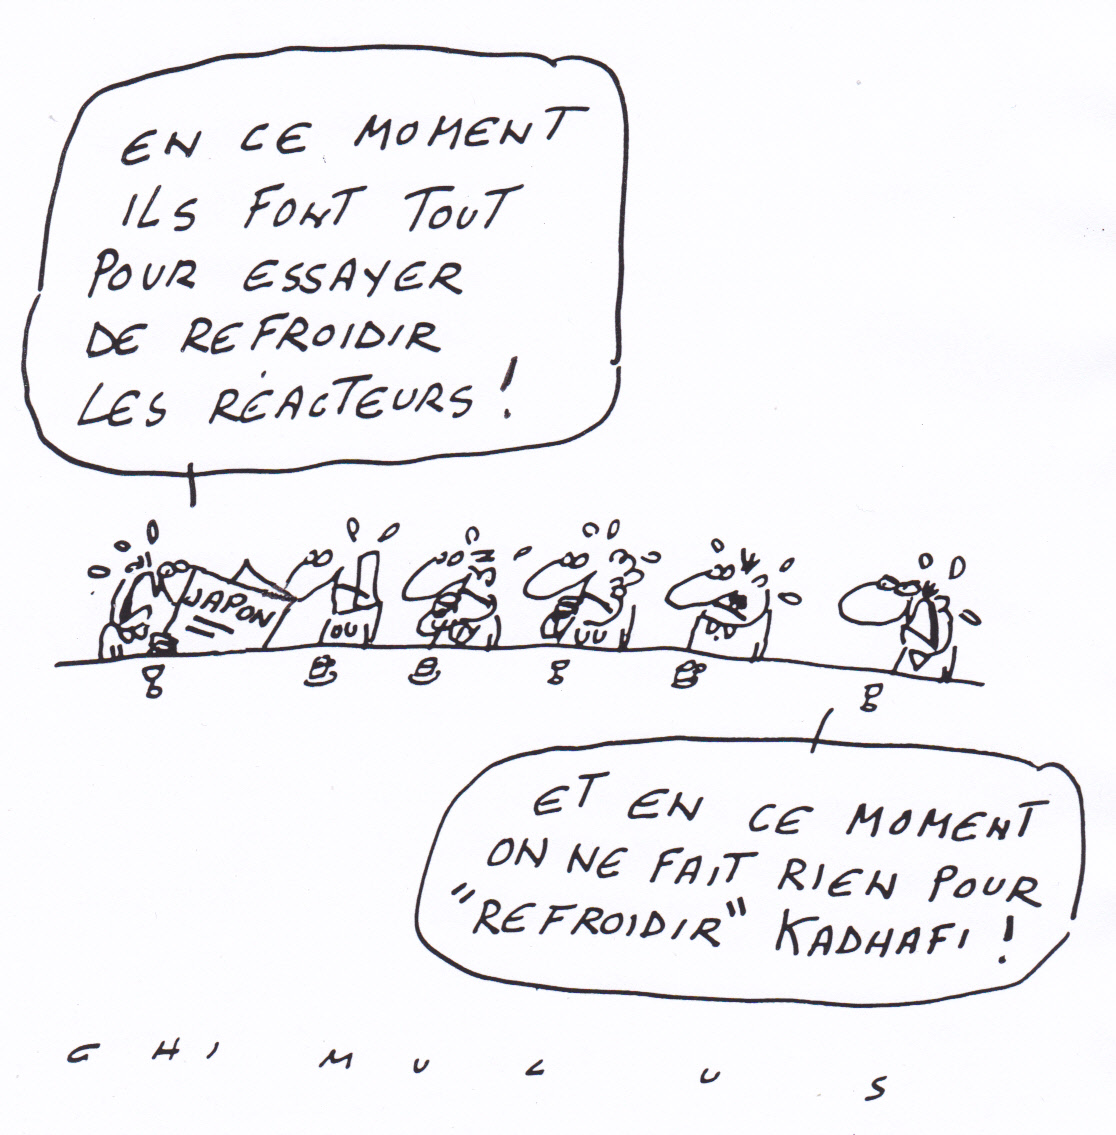 EN CE MOMENT
ILS FONT TOUT
POUR ESSAYER
DE REFROIDIR
LES RÉACTEURS !
JAPON
ET EN CE MOMENT
ON NE FAIT RIEN POUR
"REFROIDIR" KADHAFI !
GHI MULUS